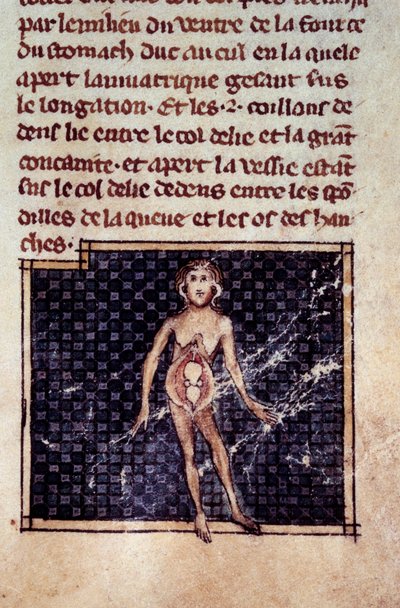 par le milieu du ventre de la fource
du stomach duc au cul en la quele
apert la matrique gesant sus
le longation · Et les · 2 · coillons de
dens lie entre le col delie et la grãt
concauite · et apert la vessie estãt
sus le col delie dedens entre les spõ
dilles de la queue et les os des han
ches ·